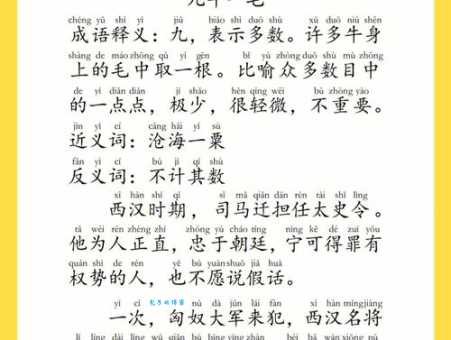 chéng yǔ shì yì jiǔ biǎo shì duō shù xǔ duō niú shēn
成语释义：九，表示多数。许多牛身
shàng de máo zhōng qǔ yì gēn bǐ yù zhòng duō shù mù zhōng
上的毛中取一根。比喻众多数目中
de yì diǎn diǎn jí shǎo hěn qīng wēi bú zhòng yào
的一点点，极少，很轻微，不重要。
jìn yì cí cāng hǎi yí sù
近义词：沧海一粟
fǎn yì cí bù jì qí shù
反义词：不计其数
xī hàn shí qī sī mǎ qiān dān rèn tài shǐ lìng
西汉时期，司马迁担任太史令。
tā wéi rén zhèng zhí zhōng yú cháo tíng nìng kě dé zuì yǒu
他为人正直，忠于朝廷，宁可得罪有
quán shì de rén yě bú yuàn shuō jiǎ huà
权势的人，也不愿说假话。
yí cì xiōng nú dà jūn lái fàn xī hàn míng jiàng
一次，匈奴大军来犯，西汉名将